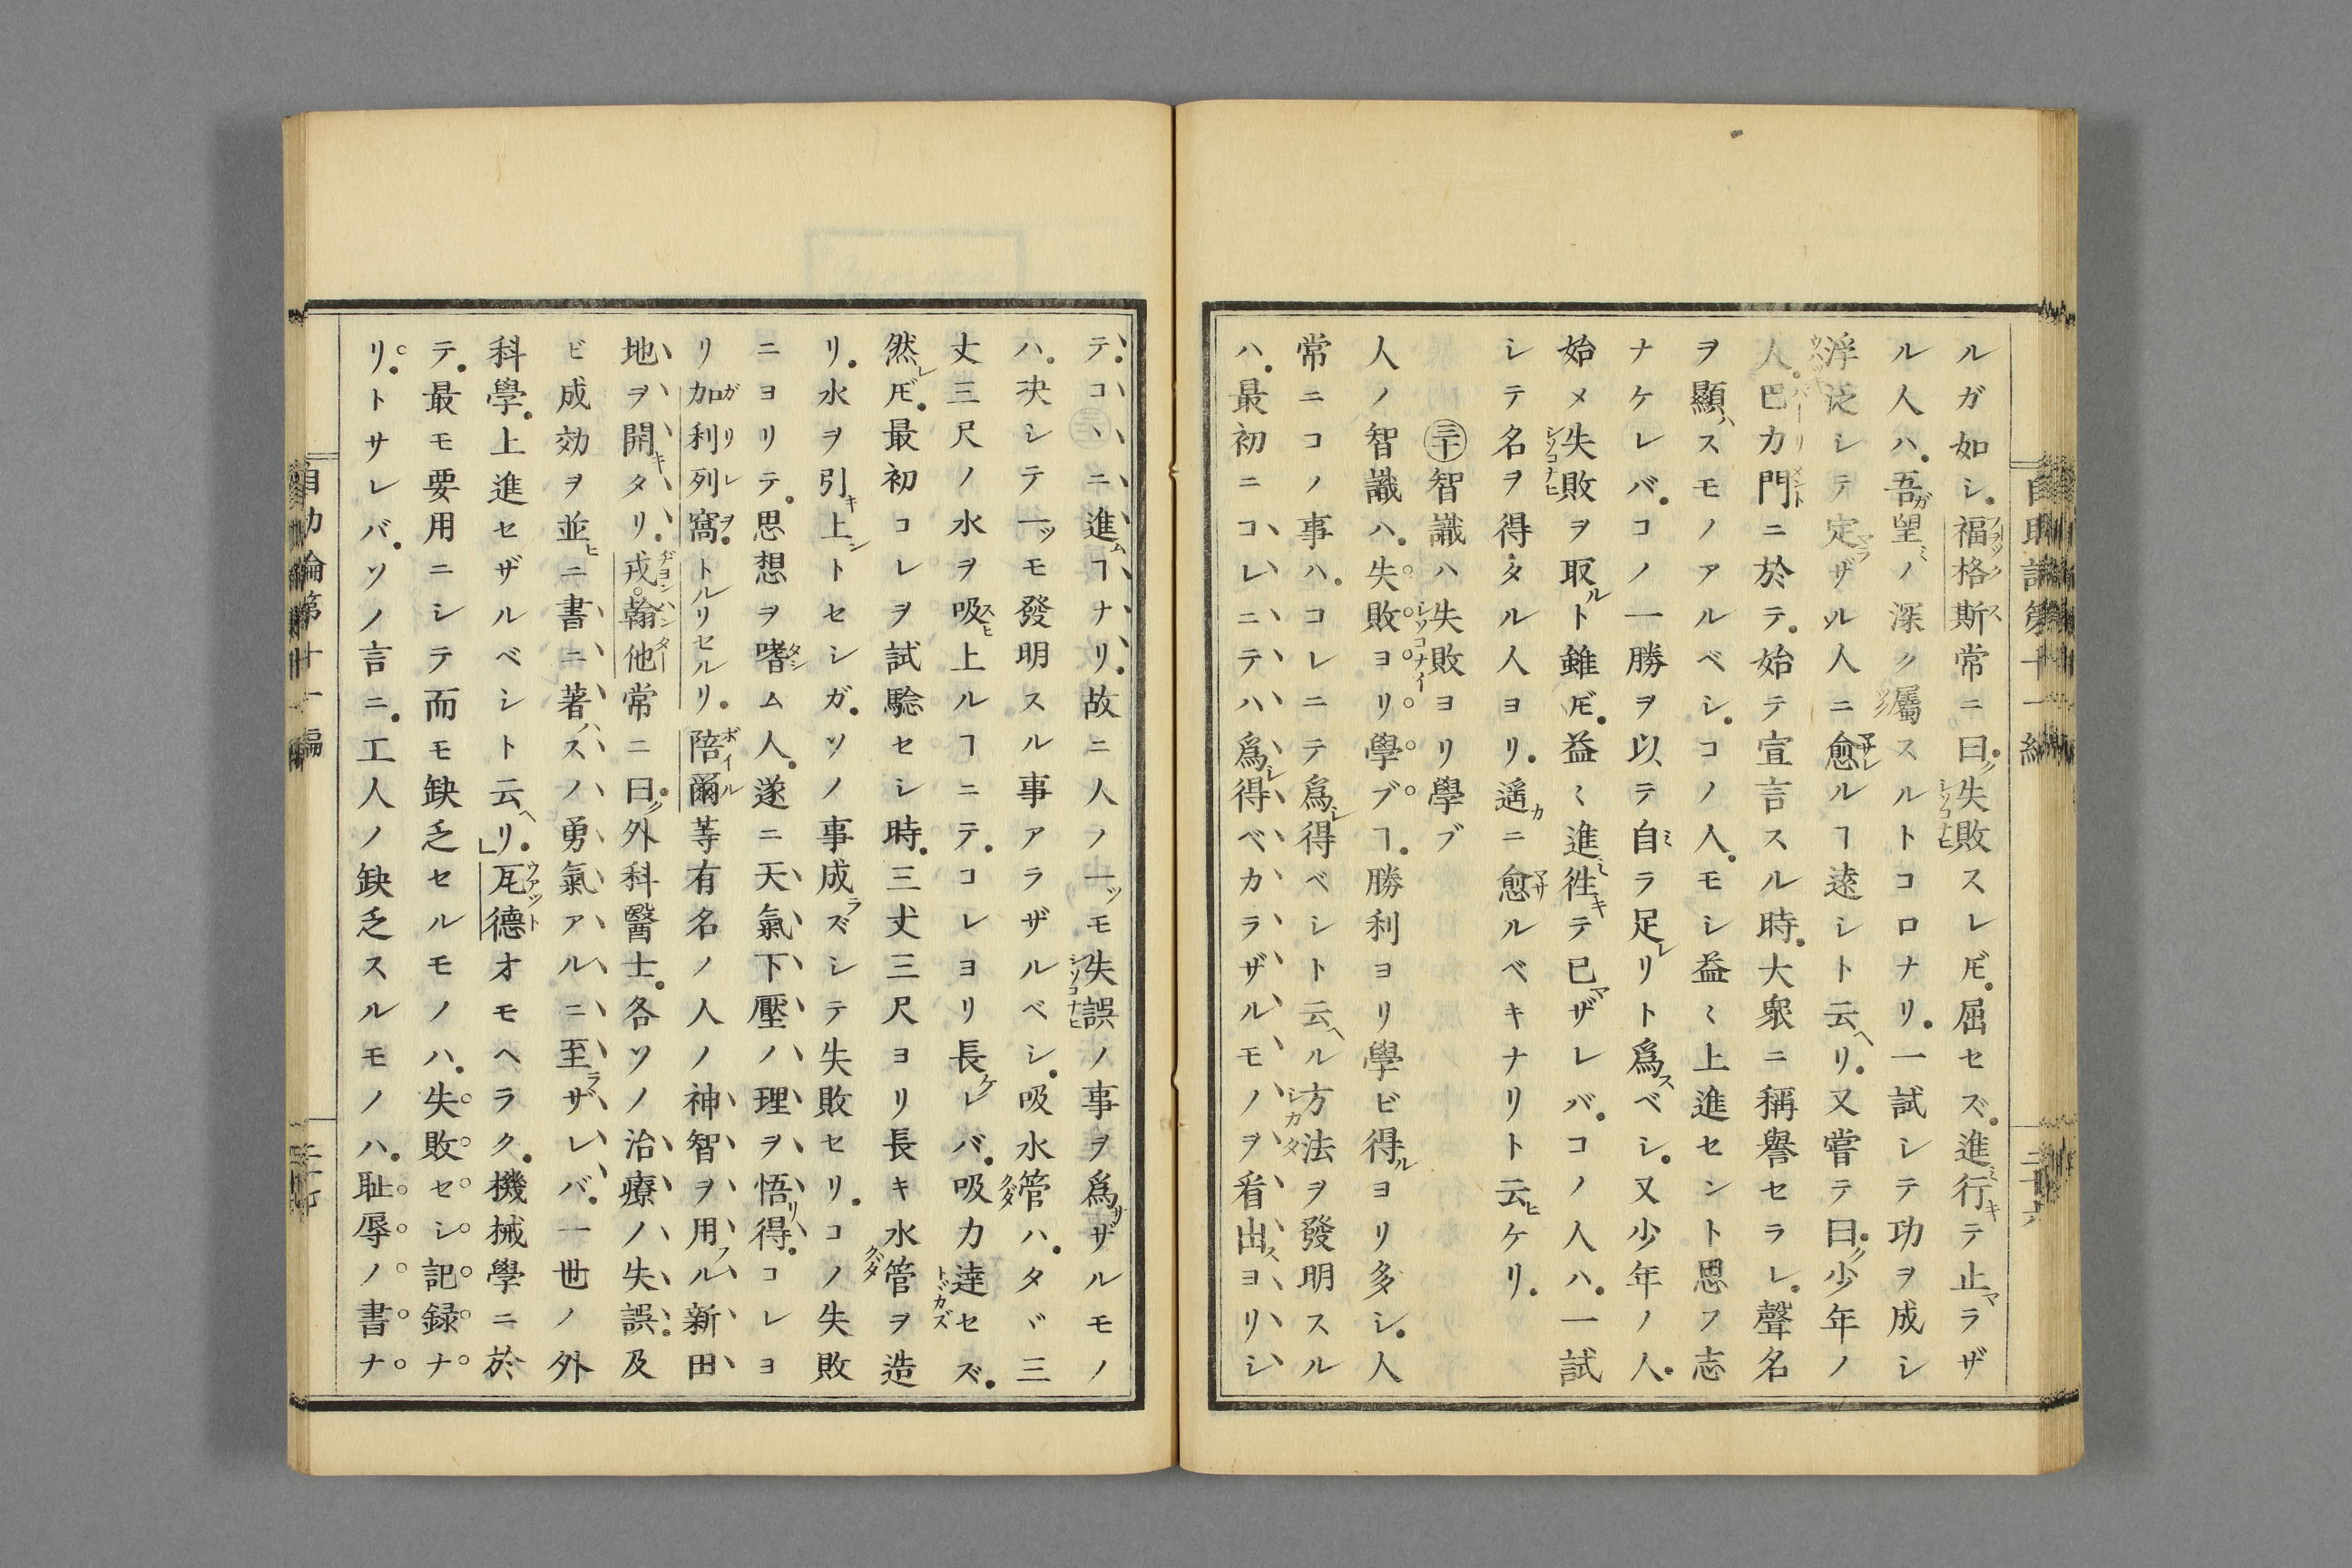 ルガ如シ福格斯常ニ曰失敗スレ𪜈屈セズ進行テ止ラザ
ル人ハ吾望ノ深ク屬スルトコロナリ一試シテ功ヲ成シ
浮泛シテ定ザル人ニ愈ルヿ遠シト云リ又嘗テ曰少年ノ
人巴力門ニ於テ始テ宣言スル時大衆ニ稱譽セラレ聲名
ヲ顯スモノアルベシコノ人モシ益〻上進セント思フ志
ナケレバコノ一勝ヲ以テ自ラ足リト爲ベシ又少年ノ人
始メ失敗ヲ取ト雖𪜈益〻進徃テ已ザレバコノ人ハ一試
シテ名ヲ得タル人ヨリ遥ニ愈ルベキナリト云ケリ
㊂十智識ハ失敗ヨリ學ブ
人ノ智識ハ失敗ヨリ學ブヿ勝利ヨリ學ビ得ヨリ多シ人
常ニコノ事ハコレニテ爲得ベシト云ル方法ヲ發明スル
ハ最初ニコレニテハ爲得ベカラザルモノヲ看出ヨリシ
テコヽニ進ヿナリ故ニ人ノ一モ失誤ノ事ヲ爲ザルモノ
ハ决シテ一モ發明スル事アラザルベシ吸水管ハタヾ三
丈三尺ノ水ヲ吸上ルヿニテコレヨリ長レバ吸力達セズ
然𪜈最初コレヲ試驗セシ時三丈三尺ヨリ長キ水管ヲ造
リ水ヲ引上トセシガソノ事成ズシテ失敗セリコノ失敗
ニヨリテ思想ヲ嗜ム人遂ニ天氣下壓ノ理ヲ悟得コレヨ
リ加利列窩トルリセルリ陪爾等有名ノ人ノ神智ヲ用ル新田
地ヲ開タリ戎翰他常ニ曰外科醫士各ソノ治療ノ失誤及
ビ成効ヲ並ニ書ニ著スノ勇氣アルニ至ザレバ一世ノ外
科學上進セザルベシト云リ瓦德オモヘラク機械學ニ於
テ最モ要用ニシテ而モ缺乏セルモノハ失敗セシ記録ナ
リトサレバソノ言ニ工人ノ缺乏スルモノハ耻辱ノ書ナ
自助論第十一編